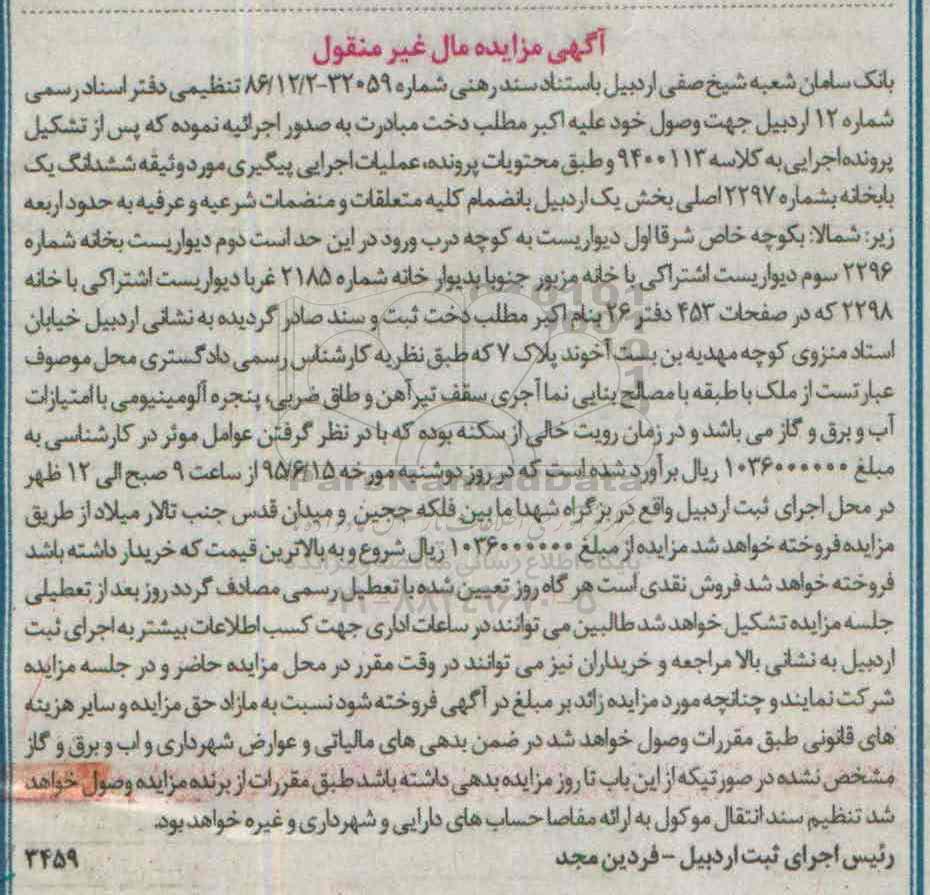 آگهی مزایده مال غیر منقول
بانک سامان شعبه شیخ صفی اردبیل باستناد سند رهنی شماره ۳۲۰۵۹-۸۶/۱۲/۲ تنظیمی دفتر اسناد رسمی
شماره ۱۲ اردبیل جهت وصول خود علیه اکبر مطلب دخت مبادرت به صدور اجرائیه نموده که پس از تشکیل
پرونده اجرایی به کلاسه ۹۴۰۰۱۱۳ و طبق محتویات پرونده، عملیات اجرایی پیگیری مورد وثیقه ششدانگ یک
بابخانه بشماره ۲۲۹۷ اصلی بخش یک اردبیل بانضمام کلیه متعلقات و منضمات شرعیه و عرفیه به حدود اربعه
زیر: شمالا: بکوچه خاص شرقا اول دیواریست به کوچه درب ورود در این حد است دوم دیواریست بخانه شماره
۲۲۹۶ سوم دیواریست اشتراکی با خانه مزبور جنوبا بدیوار خانه شماره ۲۱۸۵ غربا دیواریست اشتراکی با خانه
۲۲۹۸ که در صفحات ۴۵۳ دفتر ۲۶ بنام اکبر مطلب دخت ثبت و سند صادر گردیده به نشانی اردبیل خیابان
استاد منزوی کوچه مهدیه بن بست آخوند پلاک ۷ که طبق نظریه کارشناس رسمی دادگستری محل موصوف
عبارتست از ملک با طبقه با مصالح بنایی نما آجری سقف تیرآهن و طاق ضربی، پنجره آلومینیومی با امتیازات
آب و برق و گاز می باشد و در زمان رویت خالی از سکنه بوده که با در نظر گرفتن عوامل موثر در کارشناسی به
مبلغ ۱۰۳۶۰۰۰۰۰۰ ریال برآورد شده است که در روز دوشنبه مورخه ۹۵/۶/۱۵ از ساعت ۹ صبح الی ۱۲ ظهر
در محل اجرای ثبت اردبیل واقع در بزگراه شهدا ما بین فلکه ججین و میدان قدس جنب تالار میلاد از طریق
مزایده فروخته خواهد شد مزایده از مبلغ ۱۰۳۶۰۰۰۰۰۰ ریال شروع و به بالاترین قیمت که خریدار داشته باشد
فروخته خواهد شد فروش نقدی است هر گاه روز تعیین شده با تعطیل رسمی مصادف گردد روز بعد از تعطیلی
جلسه مزایده تشکیل خواهد شد طالبین می توانند در ساعات اداری جهت کسب اطلاعات بیشتر به اجرای ثبت
اردبیل به نشانی بالا مراجعه و خریداران نیز می توانند در وقت مقرر در محل مزایده حاضر و در جلسه مزایده
شرکت نمایند و چنانچه مورد مزایده زائد بر مبلغ در آگهی فروخته شود نسبت به مازاد حق مزایده و سایر هزینه
های قانونی طبق مقررات وصول خواهد شد در ضمن بدهی های مالیاتی و عوارض شهرداری و اب و برق و گاز
مشخص نشده در صورتیکه از این باب تا روز مزایده بدهی داشته باشد طبق مقررات از برنده مزایده وصول خواهد
شد تنظیم سند انتقال موکول به ارائه مفاصا حساب های دارایی و شهرداری و غیره خواهد بود.
رئیس اجرای ثبت اردبیل - فردین مجد
۳۴۵۹
ParsNamadData
۰۲۱-۸۸۳۴۹۶۷۰-۵